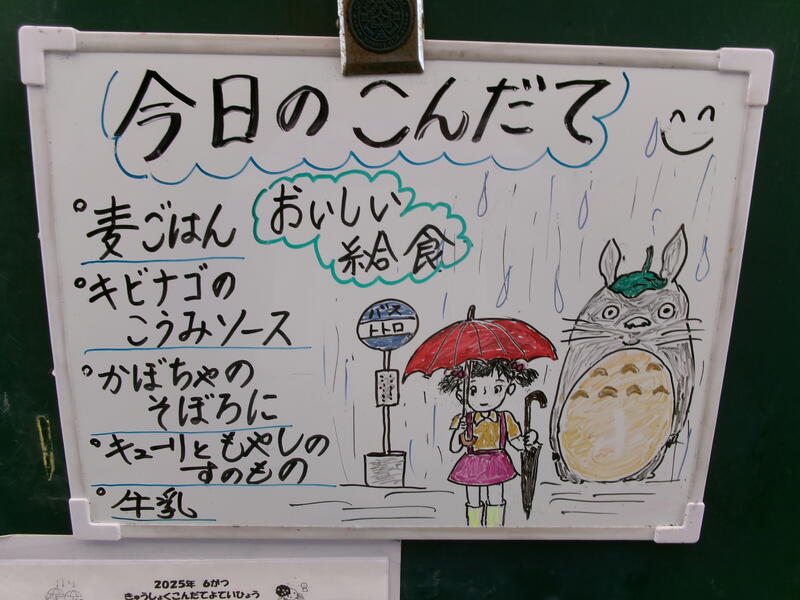 今日のこんだて
おいしい
給食
麦ごはん
キビナゴの
こうみソース
かぼちゃの
そぼろに
キューリともやしの
すのもの
牛乳
バス
トトロ
2025年 6がつ
きゅうしょくこんだてよていひょう